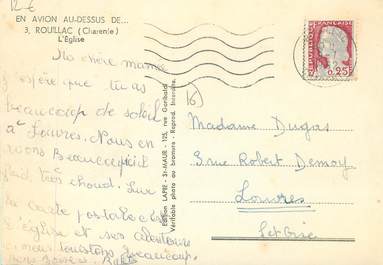 12 €
EN AVION AU-DESSUS DE...
3, ROUILLAC (Charente)
L'Église
Ma chère mamie
j'espère que tu as
beaucoup de soleil
à Louvres. Nous en
avons Beaucoup il
fait très chaud. Sur
la carte postale c'est
l'église et ses alentours
nous t'embrassons beaucoup.
Edition LAPIE - St-MAUR - 125, rue Garibaldi
Véritable photo au bromure - Reprod. Interdite.
(6)
RÉPUBLIQUE FRANÇAISE
0,25
Madame Dugas
3 rue Robert Demoy
Louvres
S et Oise